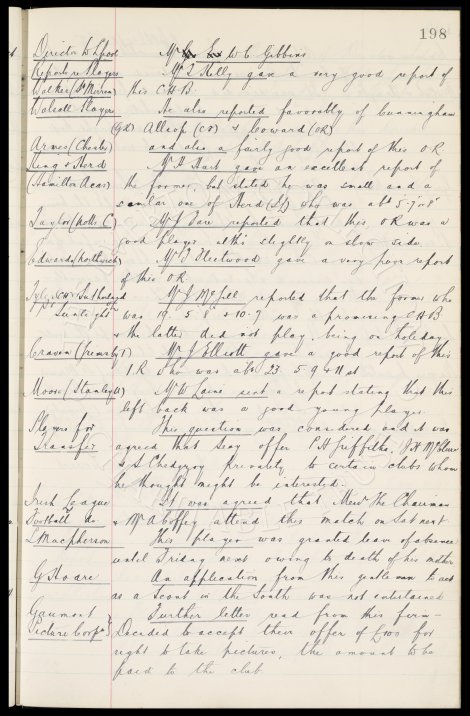 198
Director to Lpool Mr W. C. Gibbins
Reports re Players Mr T Kelly gave a very good report of
Walker (St Mirren) this C.H.B.
Walsall Players He also reported favorably of Cunningham
(GK) Allsop (CF) & Coward (OR)
Armes (Chester) and also a fairly good report of this O R
King & Herd Mr H Hart gave an excellent report of
(Hamilton Acas) the former, but stated he was small and a
similar one of Herd who was abt 5.7 or 8
Taylor (Notts C) Mr reported that this O R was a
good player altho slightly on slow side.
Edwards (Northwich) Mr Fleetwood gave a very poor report
of this OR
Mr J McGee reported that the former who
was 19. 5.8 & 10.7 was a promising C H B
& the latter did not play being on holiday
Craven (Grimsby T) Mr J Elliott gave a good report of this
I R who was abt 23 5.9 & 11 st
Moore (Stanley U) Mr W Laine sent a report stating that this
left back was a good young player.
Players for This question was considered and it was
Transfer agreed that Secy offer P H Griffiths, J H McClure
& S Chedgzoy privately to certain clubs whom
he thought might be interested.
Irish League It was agreed that Messrs The Chairman
Football do & Mr A Coffey attend this match on Sat next
L Macpherson This player was granted leave of absence
until Friday next owing to death of his mother
G Hoare An application from this gentleman to act
as a Scout in the South was not entertained
Gaumont Further letter read from this firm -
Picture Corpn Ld Decided to accept their offer of £100 for
right to take pictures, the amount to be
paid to the club